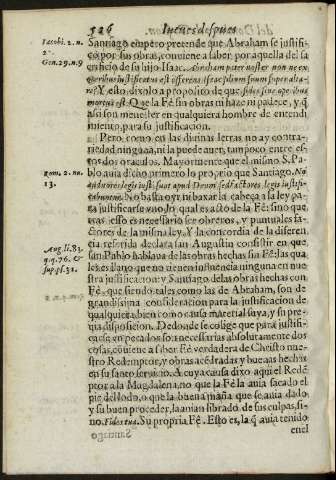 526 Iueues despues
Iacobi. 2. n.
2.
Gen. 29. n. 9
Santiago empero pretende que Abraham se justifi-
cò por sus obras, conuiene a saber, por aquella del sa-
crificio de su hijo Isaac. Abraham pater noster non ne ex
operibus iustificatus est offerens Isaac filium suum super alta-
re? Y esto, dixolo a proposito de que fides sine operibus
mortua est. Que la Fè sin obras ni haze ni padece, y q̃
assi son menester en qualquiera hombre de entendi
miento, para su justificacion.
Pero como en las diuinas letras no ay contra-
riedad ninguna, ni la puede auer, tampoco entre es-
tos dos oraculos. Mayormente que el mismo S. Pa-
blo auia dicho primero lo proprio que Santiago. No
Rom. 2. nu.
13.
auditores legis iusti sunt apud Deum, sed factores legis iustifi-
cabuntur. No basta oyr, ni baxar la cabeça a la ley pa-
ra justificarse vno, lo qual es acto de la Fè: sino que
tras esso es necessario ser obreros, y puntuales fa-
ctores de la misma ley. Y la concordia de la diferen
cia referida declara san Augustin consistir en que,
Aug. li. 83.
q. q. 76. &
sup. ps. 31.
san Pablo hablaua de las obras hechas sin Fè: las qua
les es llano que no tienen influencia ninguna en nue
stra justificacion: y Santiago de las obras hechas con
Fè, que siendo tales como las de Abraham, son de
grandissima consideracion para la justificacion de
qualquiera bien como causa material suya, y su pre-
uia disposicion. De donde se colige que para justifi-
carse vn pecador, sõ necessarias absolutamente dos
cosas, cõuiene a saber Fè verdadera de Christo nue-
stro Redemptor, y obras acèdradas y buenas hechas
en su santo seruicio. A cuya causa dixo aqui el Redẽ
ptor a la Magdalena, no que la Fè la auia sacado el
pie del lodo, o que la buena maña que se auia dado
y su buen proceder, la auian librado de sus culpas, si-
no. Fides tua. Su propria Fè. Esto es, la q̃ auia tenido
en el